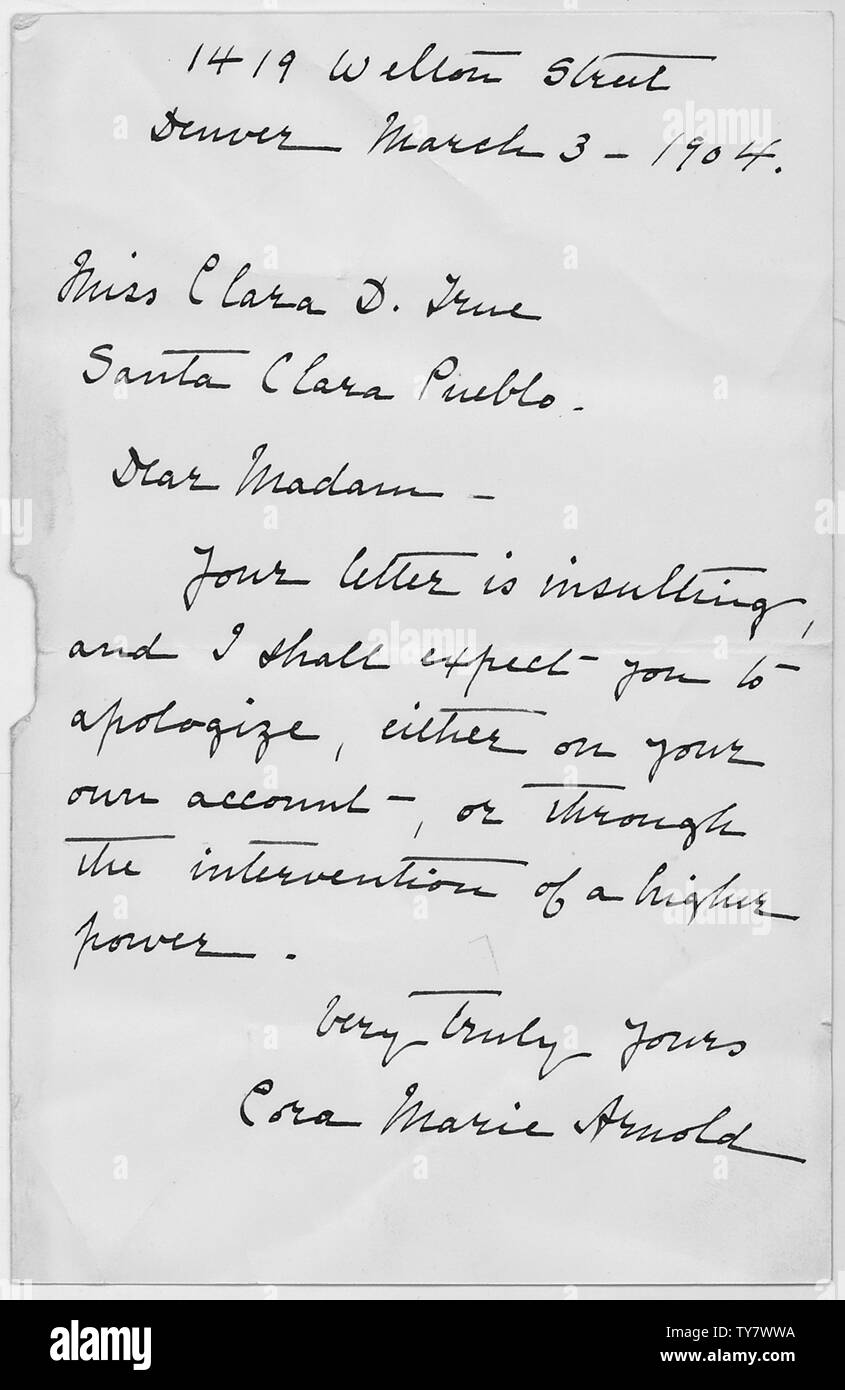 1419 Welton Street
Denver March 3 - 1904.
Miss Clara D. True
Santa Clara Pueblo -
Dear Madam -
Your letter is insulting,
and I shall expect you to
apologize, either on your
own account -, or through
the intervention of a higher
power.
Very truly yours
Cora Marie Arnold
alamy
alamy
alamy
alamy
Image ID: TY7WWA
www.alamy.com